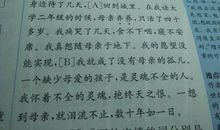 身侍住了几天,[A]回到城里。在我读大
学二年级的时候,母亲弃养,只活了四十
多岁。我痛哭了几天,食不下咽,寝不安
席。我真想随母亲于地下。我的愿望没
能实现,[B]我就成了没有母亲的孤儿。
一个缺少母爱的孩子,是灵魂不全的人。
我怀着不全的灵魂,抱终天之恨。一想
到母亲,就泪流不止,数十年如一日。